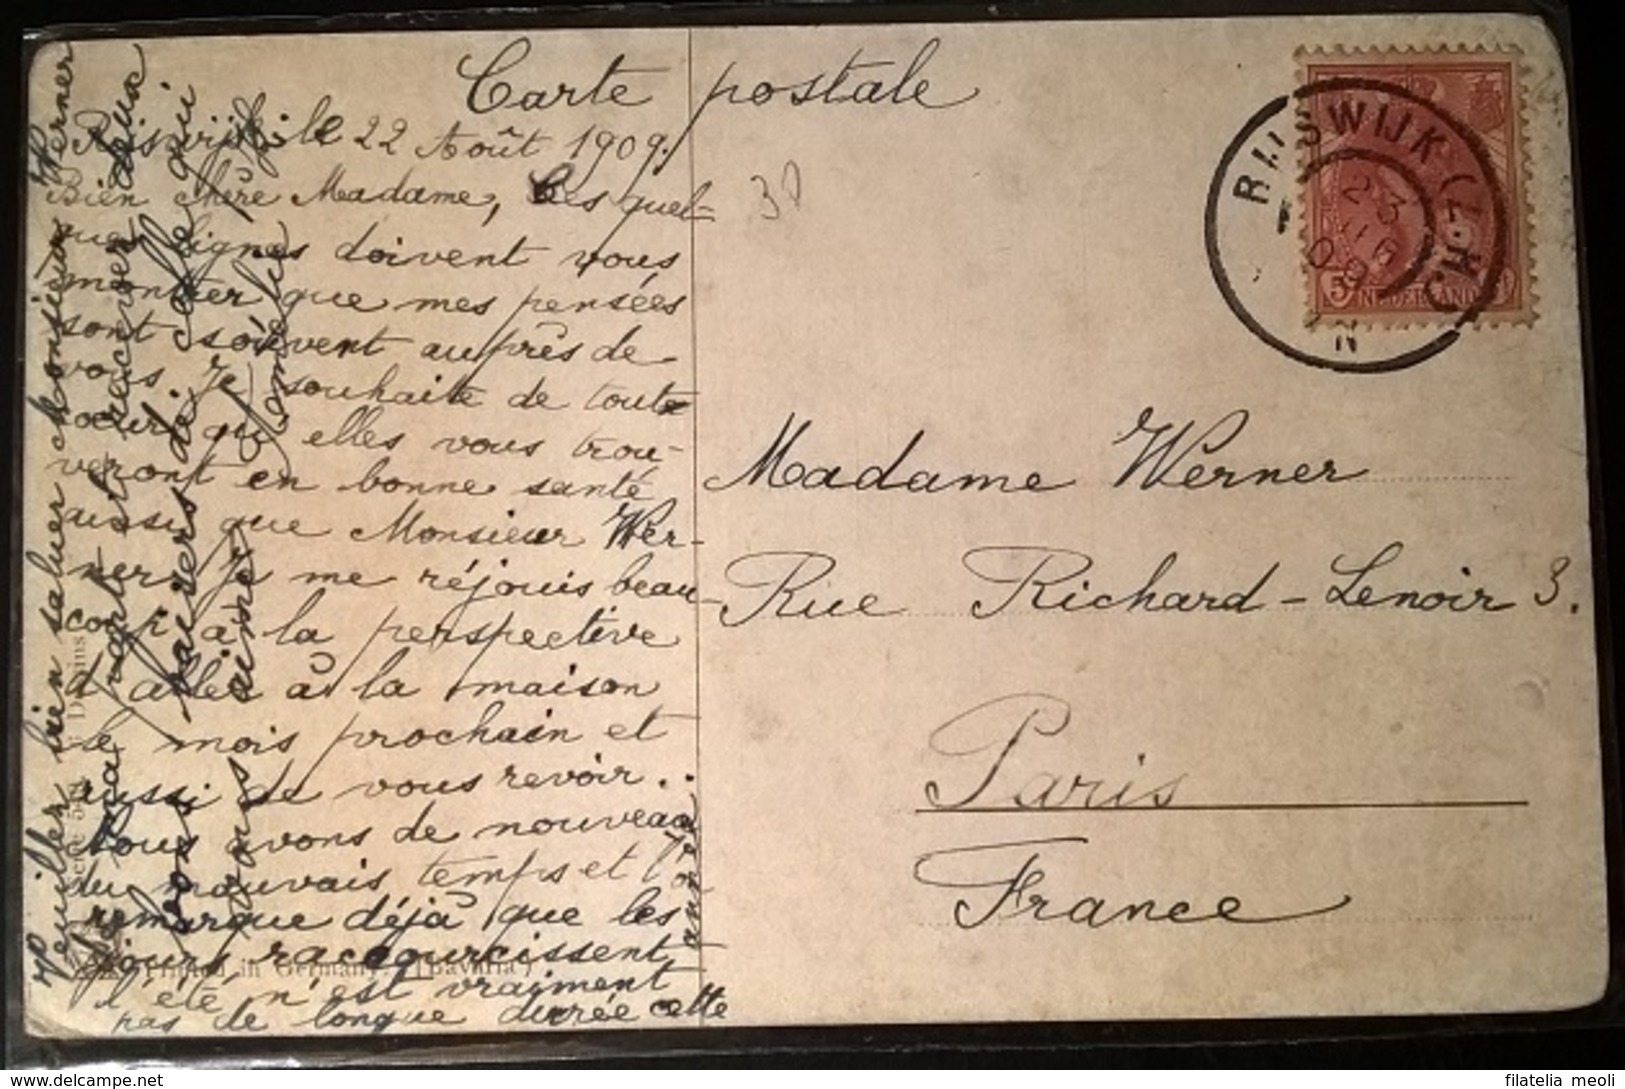 Carte postale
Rijswijk, le 22 Août 1909.
Bien chère Madame, Ces quel-
ques lignes doivent vous
montrer que mes pensées
sont souvent auprès de
vous. Je souhaite de toute
coeur qu'elles vous trou-
veront en bonne santé
aussi que Monsieur Wer-
ner. Je me réjouis beau-
coup à la perspective
d'aller à la maison
le mois prochain et
aussi de vous revoir.
Nous avons de nouveau
du mauvais temps et l'on
remarque déjà que les
jours raccourcissent
l'été n'est vraiment
pas de longue durée cette
année.
Veuillez bien saluer Monsieur Werner
de ma part et recevez deux
bons baisers de celle qui
vous aime
Cornélie
Madame Werner
Rue Richard-Lenoir 3.
Paris
France
30
RIJSWIJK (Z.H.)
23
09
5 NEDERLAND
Printed in Germany (Bavaria)
filatelia meoli